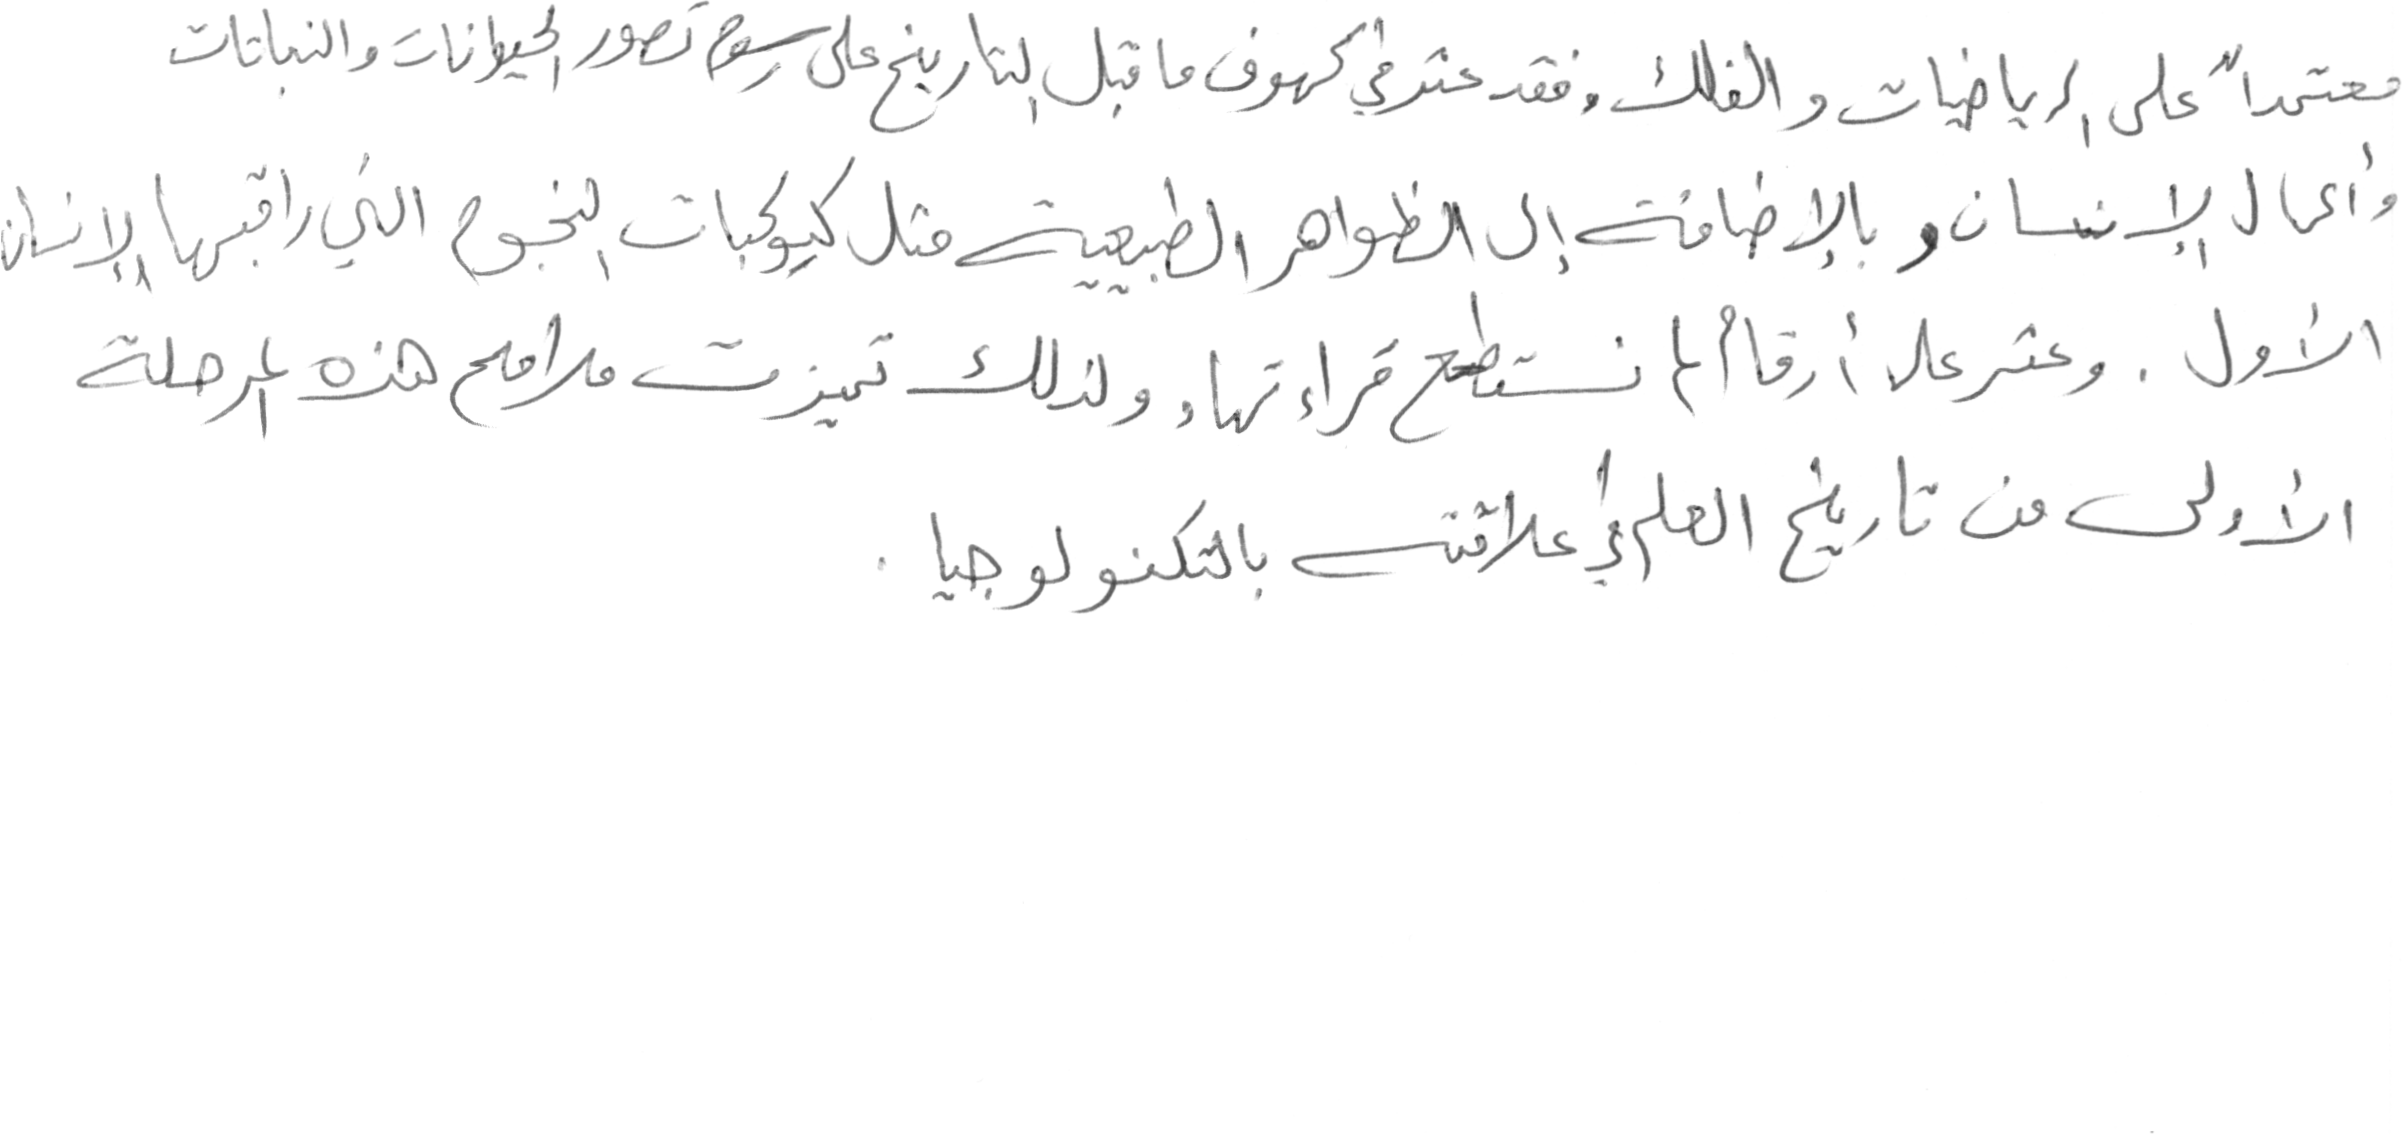 معتمداً على الرياضيات والفلك، فقد عثر في كهوف ما قبل التاريخ على رسوم تصور الحيوانات والنباتات
وأعمال الإنسان، بالإضافة إلى الظواهر الطبيعية مثل كويكبات النجوم التي راقبها الإنسان
الأول. وعثر على أرقام لم نستطع قراءتها، ولذلك تميزت ملامح هذه المرحلة
الأولى من تاريخ العلم في علاقته بالتكنولوجيا.